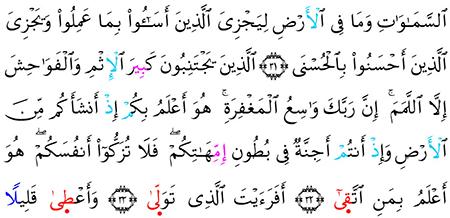 ٱلسَّمَـٰوَٰتِ وَمَا فِى ٱلْأَرْضِ لِيَجْزِىَ ٱلَّذِينَ أَسَـٰٓـُٔوا۟ بِمَا عَمِلُوا۟ وَيَجْزِىَ
ٱلَّذِينَ أَحْسَنُوا۟ بِٱلْحُسْنَى ﴿٣١﴾ ٱلَّذِينَ يَجْتَنِبُونَ كَبِيرَ ٱلْإِثْمِ وَٱلْفَوَٰحِشَ
إِلَّا ٱللَّمَمَ ۚ إِنَّ رَبَّكَ وَٰسِعُ ٱلْمَغْفِرَةِ ۚ هُوَ أَعْلَمُ بِكُمْ إِذْ أَنشَأَكُم مِّنَ
ٱلْأَرْضِ وَإِذْ أَنتُمْ أَجِنَّةٌ فِى بُطُونِ إِمِّهَـٰتِكُمْ ۖ فَلَا تُزَكُّوٓا۟ أَنفُسَكُمْ ۖ هُوَ
أَعْلَمُ بِمَنِ ٱتَّقَىٰٓ ﴿٣٢﴾ أَفَرَءَيْتَ ٱلَّذِى تَوَلَّىٰ ﴿٣٣﴾ وَأَعْطَىٰ قَلِيلًا